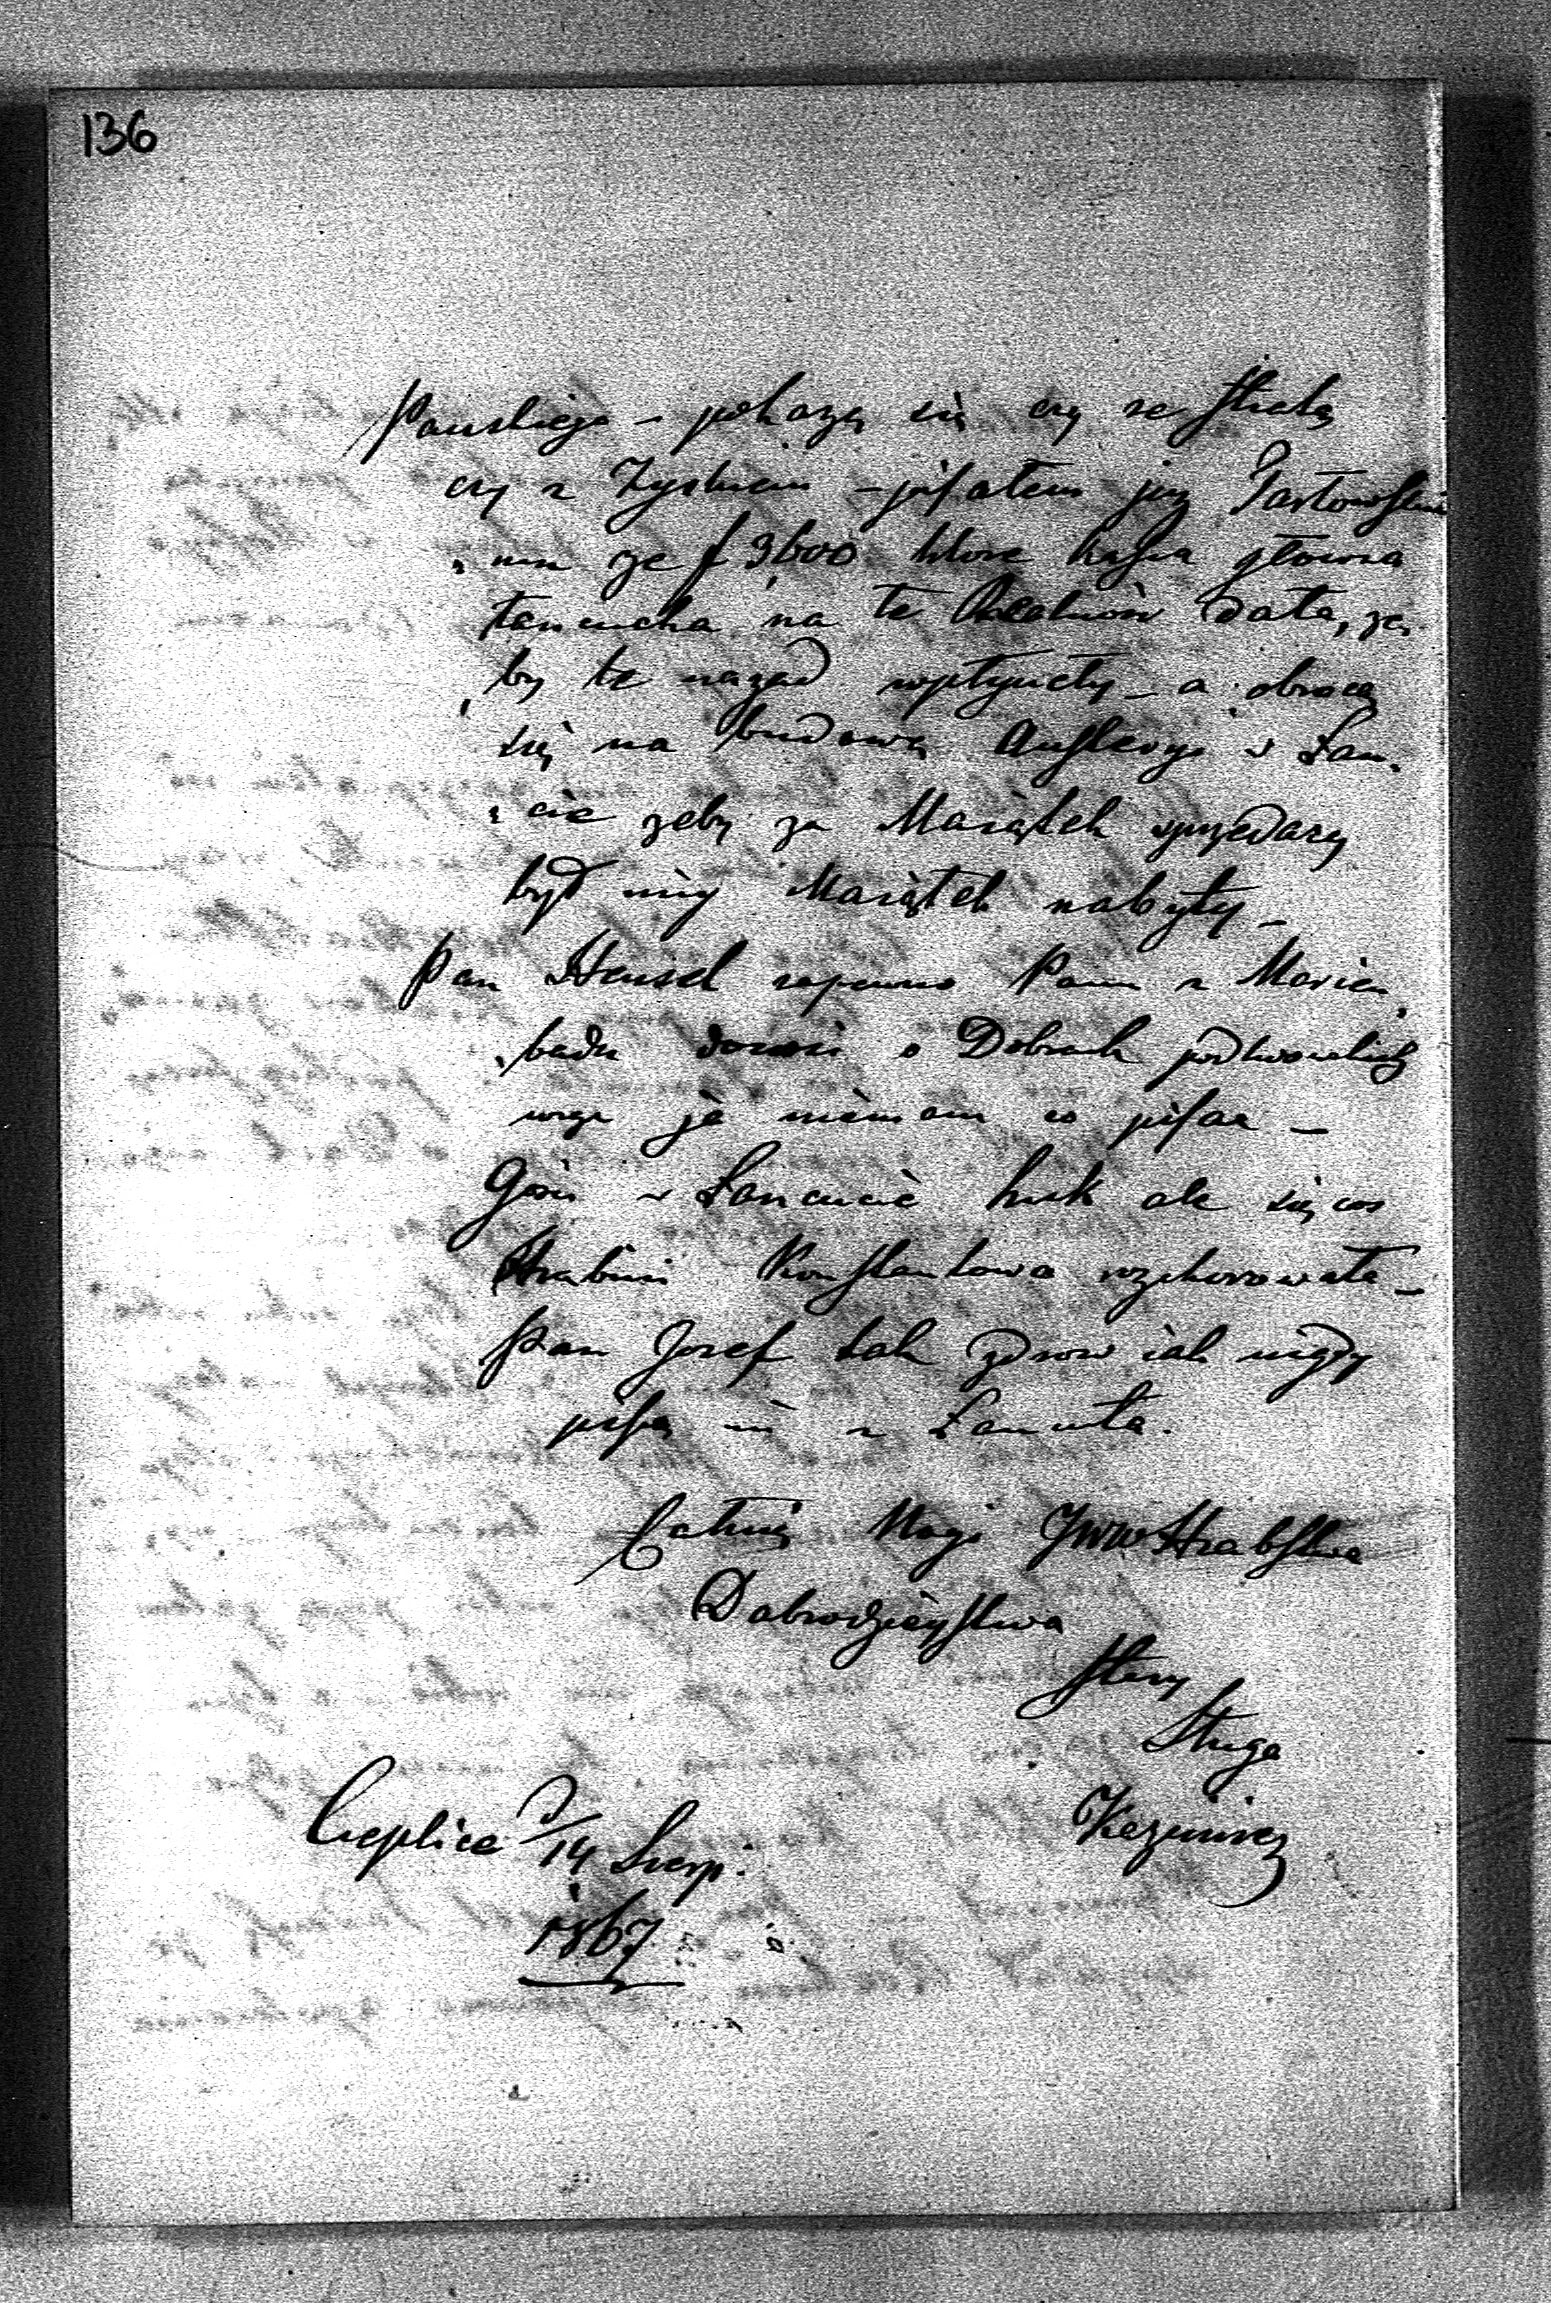 136
Pańskiego – pokażą się czy ze stratą
czy z Zyskiem – pisałem już Partowskie
„mu ze f 3600 które kassa główna
Łancucka na te Realnośw dała, że
„by te nazad wpłynęły – a obrócą
się na budowę Austeryi w Łan„
„cie żeby za Maiątek sprzedany
był iny Maiątek nabyty –
Pan Hensel zapewne Panu z Marien„
„badu donosi o Dobrach podlwowskich
więc ja niemam co pisać –
Gości w Łancucie huk ale się coś
Hrabini Konstantowa rozchorowała –
Pan Jozef tak zdrow iak nigdy
piszą mi z Łancuta.
Całuię Nogi JWW Hrabstwa
Dobrodzieystwa
stary
Sługa
Kazimirz
Cieplice d/14 Sierp:
1867